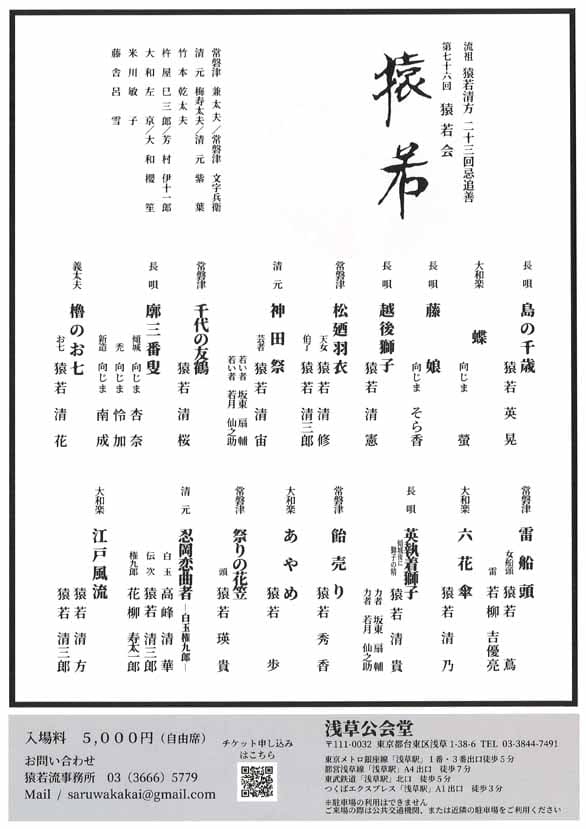 流祖 猿若清方 二十三回忌追善
第七十六回 猿若会
猿若
常磐津 兼太夫/常磐津 文字兵衛
清元 梅寿太夫/清元 紫葉
竹本 乾太夫
杵屋 巳三郎/芳村 伊十一郎
大和 左京/大和 櫻笙
米川 敏子
藤舎 呂雪
長唄 島の千歳
猿若 英晃
大和楽 蝶
向じま 螢
長唄 藤娘
向じま そら香
長唄 越後獅子
猿若 清憲
常磐津 松廼羽衣
天女 猿若 清修
伯了 猿若 清三郎
清元 神田祭
芸者 猿若 清宙
若い者 坂東 扇輔
若い者 若月 仙之助
常磐津 千代の友鶴
猿若 清桜
長唄 廓三番叟
傾城 向じま 杏奈
禿 向じま 怜加
新造 向じま 南成
義太夫 櫓のお七
お七 猿若 清花
常磐津 雷船頭
女船頭 猿若 蔦
雷 若柳 吉優亮
大和楽 六花傘
猿若 清乃
長唄 英執着獅子
傾城後に獅子の精 猿若 清貴
力者 坂東 扇輔
力者 若月 仙之助
常磐津 飴売り
猿若 秀香
大和楽 あやめ
猿若 歩
常磐津 祭りの花笠
頭 猿若 瑛貴
清元 忍岡恋曲者―白玉権九郎―
白玉 高峰 清華
伝次 猿若 清三郎
権九郎 花柳 寿太一郎
大和楽 江戸風流
猿若 清方
猿若 清三郎
入場料 5,000円(自由席)
お問い合わせ
猿若流事務所 03(3666)5779
Mail / saruwakakai@gmail.com
チケット申し込み
はこちら
浅草公会堂
〒111-0032 東京都台東区浅草 1-38-6 TEL 03-3844-7491
東京メトロ銀座線「浅草駅」1番・3番出口徒歩5分
都営浅草線「浅草駅」A4出口 徒歩7分
東武鉄道「浅草駅」北口 徒歩5分
つくばエクスプレス「浅草駅」A1出口 徒歩3分
※駐車場の利用はできません
ご来場の際は公共交通機関、または近隣の駐車場をご利用ください